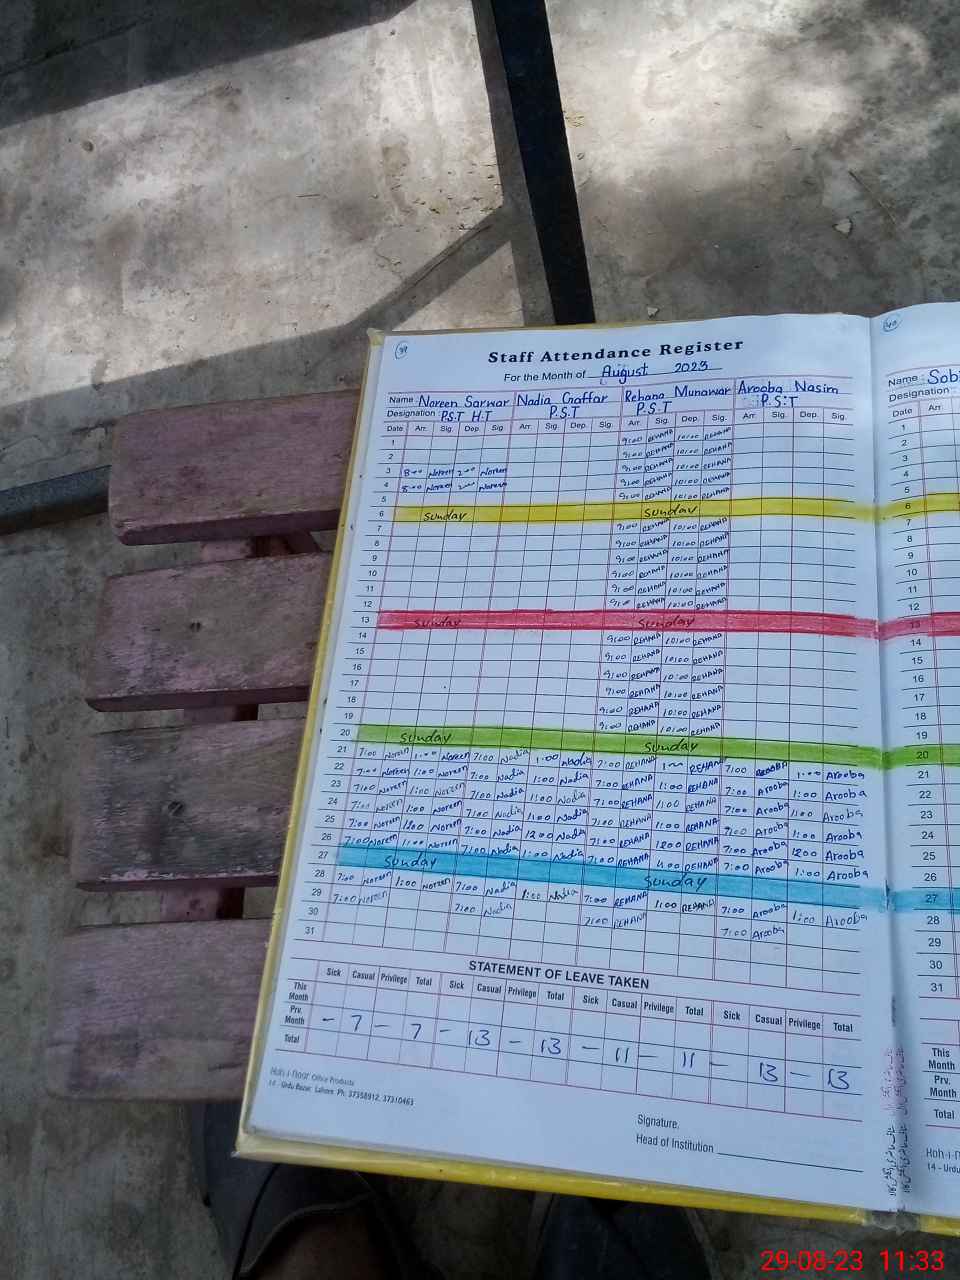 39
Staff Attendance Register
For the Month of August 2023
Name Noreen Sarwar Nadia Gaffar Rehana Munawar Arooba Nasim
Designation P.S.T H.T P.S.T P.S.T P.S.T
Date Arr. Sig. Dep. Sig. Arr. Sig. Dep. Sig. Arr. Sig. Dep. Sig. Arr. Sig. Dep. Sig.
1 9:00 REHANA 10:00 REHANA
2 9:00 REHANA 10:00 REHANA
3 8:00 Noreen 2:00 Noreen 9:00 REHANA 10:00 REHANA
4 8:00 Noreen 2:00 Noreen 9:00 REHANA 10:00 REHANA
5 9:00 REHANA 10:00 REHANA
6 Sunday Sunday
7 9:00 REHANA 10:00 REHANA
8 9:00 REHANA 10:00 REHANA
9 9:00 REHANA 10:00 REHANA
10 9:00 REHANA 10:00 REHANA
11 9:00 REHANA 10:00 REHANA
12 9:00 REHANA 10:00 REHANA
13 Sunday Sunday
14 9:00 REHANA 10:00 REHANA
15 9:00 REHANA 10:00 REHANA
16 9:00 REHANA 10:00 REHANA
17 9:00 REHANA 10:00 REHANA
18 9:00 REHANA 10:00 REHANA
19 9:00 REHANA 10:00 REHANA
20 Sunday Sunday
21 7:00 Noreen 1:00 Noreen 7:00 Nadia 1:00 Nadia 7:00 REHANA 1:00 REHANA 7:00 Arooba 1:00 Arooba
22 7:00 Noreen 1:00 Noreen 7:00 Nadia 1:00 Nadia 7:00 REHANA 1:00 REHANA 7:00 Arooba 1:00 Arooba
23 7:00 Noreen 1:00 Noreen 7:00 Nadia 1:00 Nadia 7:00 REHANA 1:00 REHANA 7:00 Arooba 1:00 Arooba
24 7:00 Noreen 1:00 Noreen 7:00 Nadia 1:00 Nadia 7:00 REHANA 1:00 REHANA 7:00 Arooba 1:00 Arooba
25 7:00 Noreen 1200 Noreen 7:00 Nadia 1200 Nadia 7:00 REHANA 1200 REHANA 7:00 Arooba 1200 Arooba
26 7:00 Noreen 1:00 Noreen 7:00 Nadia 1:00 Nadia 7:00 REHANA 1:00 REHANA 7:00 Arooba 1:00 Arooba
27 Sunday Sunday
28 7:00 Noreen 1:00 Noreen 7:00 Nadia 1:00 Nadia 7:00 REHANA 1:00 REHANA 7:00 Arooba 1:00 Arooba
29 7:00 Noreen 7:00 Nadia 7:00 REHANA 7:00 Arooba
30
31
STATEMENT OF LEAVE TAKEN
Sick Casual Privilege Total Sick Casual Privilege Total Sick Casual Privilege Total Sick Casual Privilege Total
This Month
Prv. Month - 7 - 7 - 13 - 13 - 11 - 11 - 13 - 13
Total
Hoh-i-Noor Office Products
14 - Urdu Bazar, Lahore. Ph: 37358912, 37310463
Signature,
Head of Institution
40
Name Sobi
Designation
Date Arr.
1
2
3
4
5
6
7
8
9
10
11
12
13
14
15
16
17
18
19
20
21
22
23
24
25
26
27
28
29
30
31
This Month
Prv. Month
Total
Hoh-i-N
14 - Urdu
29-08-23 11:33